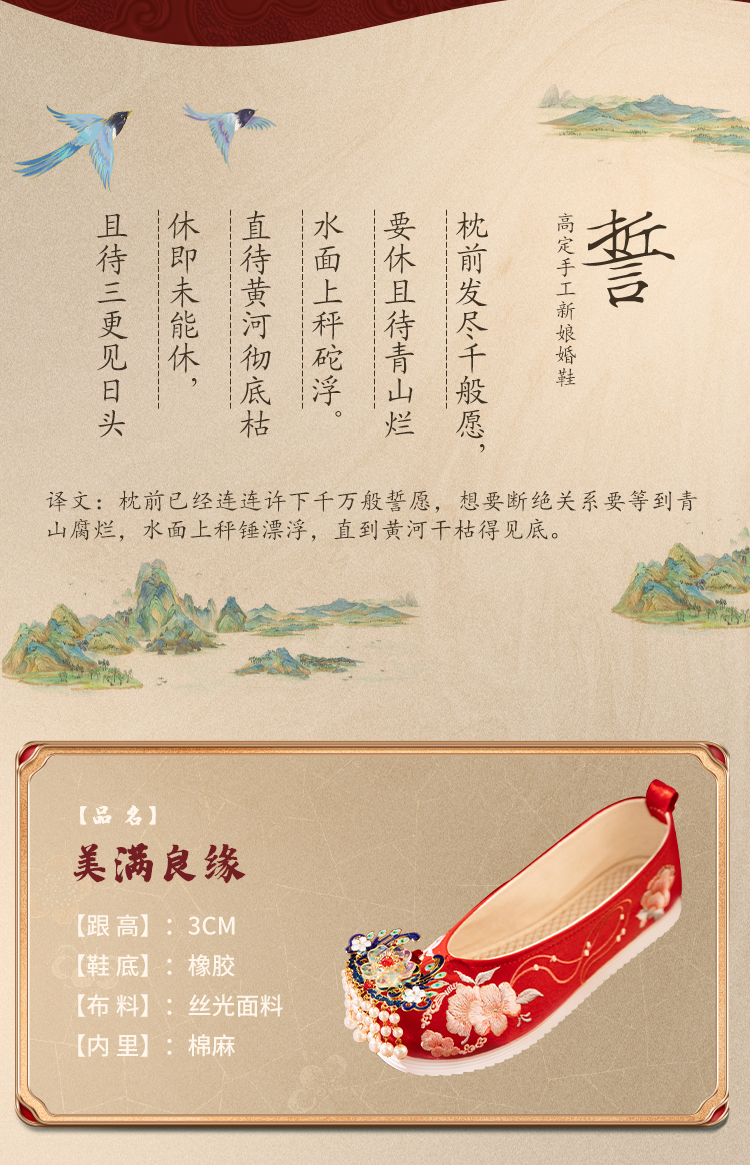 誓
高定手工新娘婚鞋
枕前发尽千般愿，
要休且待青山烂
水面上秤砣浮。
直待黄河彻底枯
休即未能休，
且待三更见日头
译文：枕前已经连连许下千万般誓愿，想要断绝关系要等到青
山腐烂，水面上秤锤漂浮，直到黄河干枯得见底。
【品 名】
美满良缘
【跟 高】：3CM
【鞋 底】：橡胶
【布 料】：丝光面料
【内 里】：棉麻